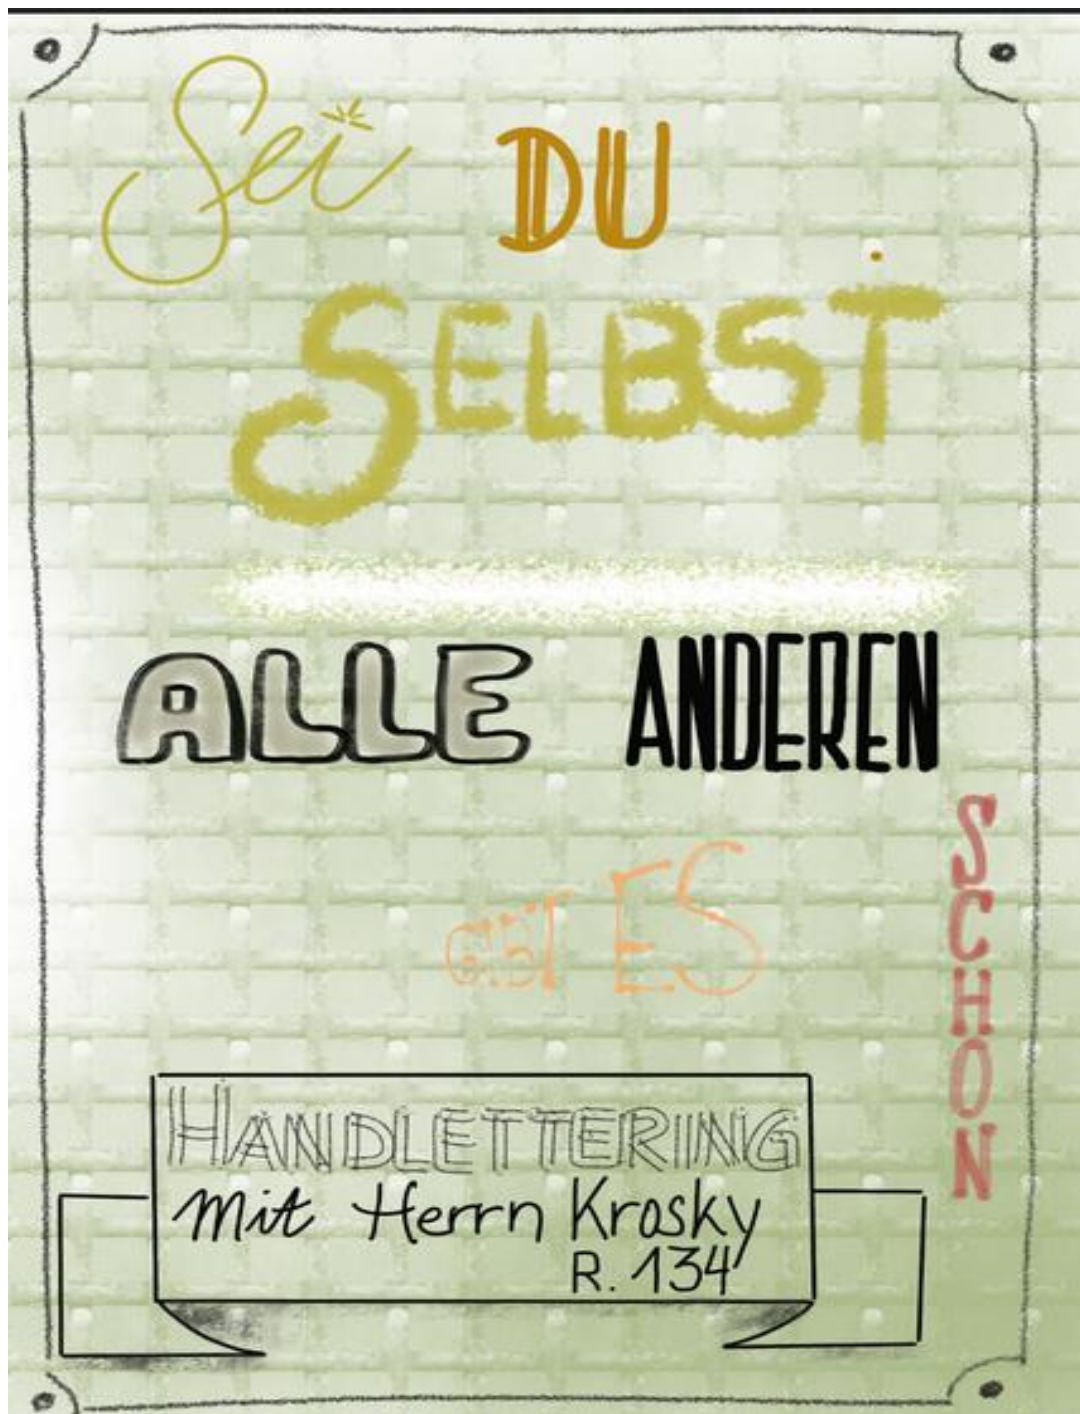 Sei DU
SELBST
ALLE ANDEREN
GIBT ES
SCHON
HANDLETTERING
mit Herrn Krosky
R. 134